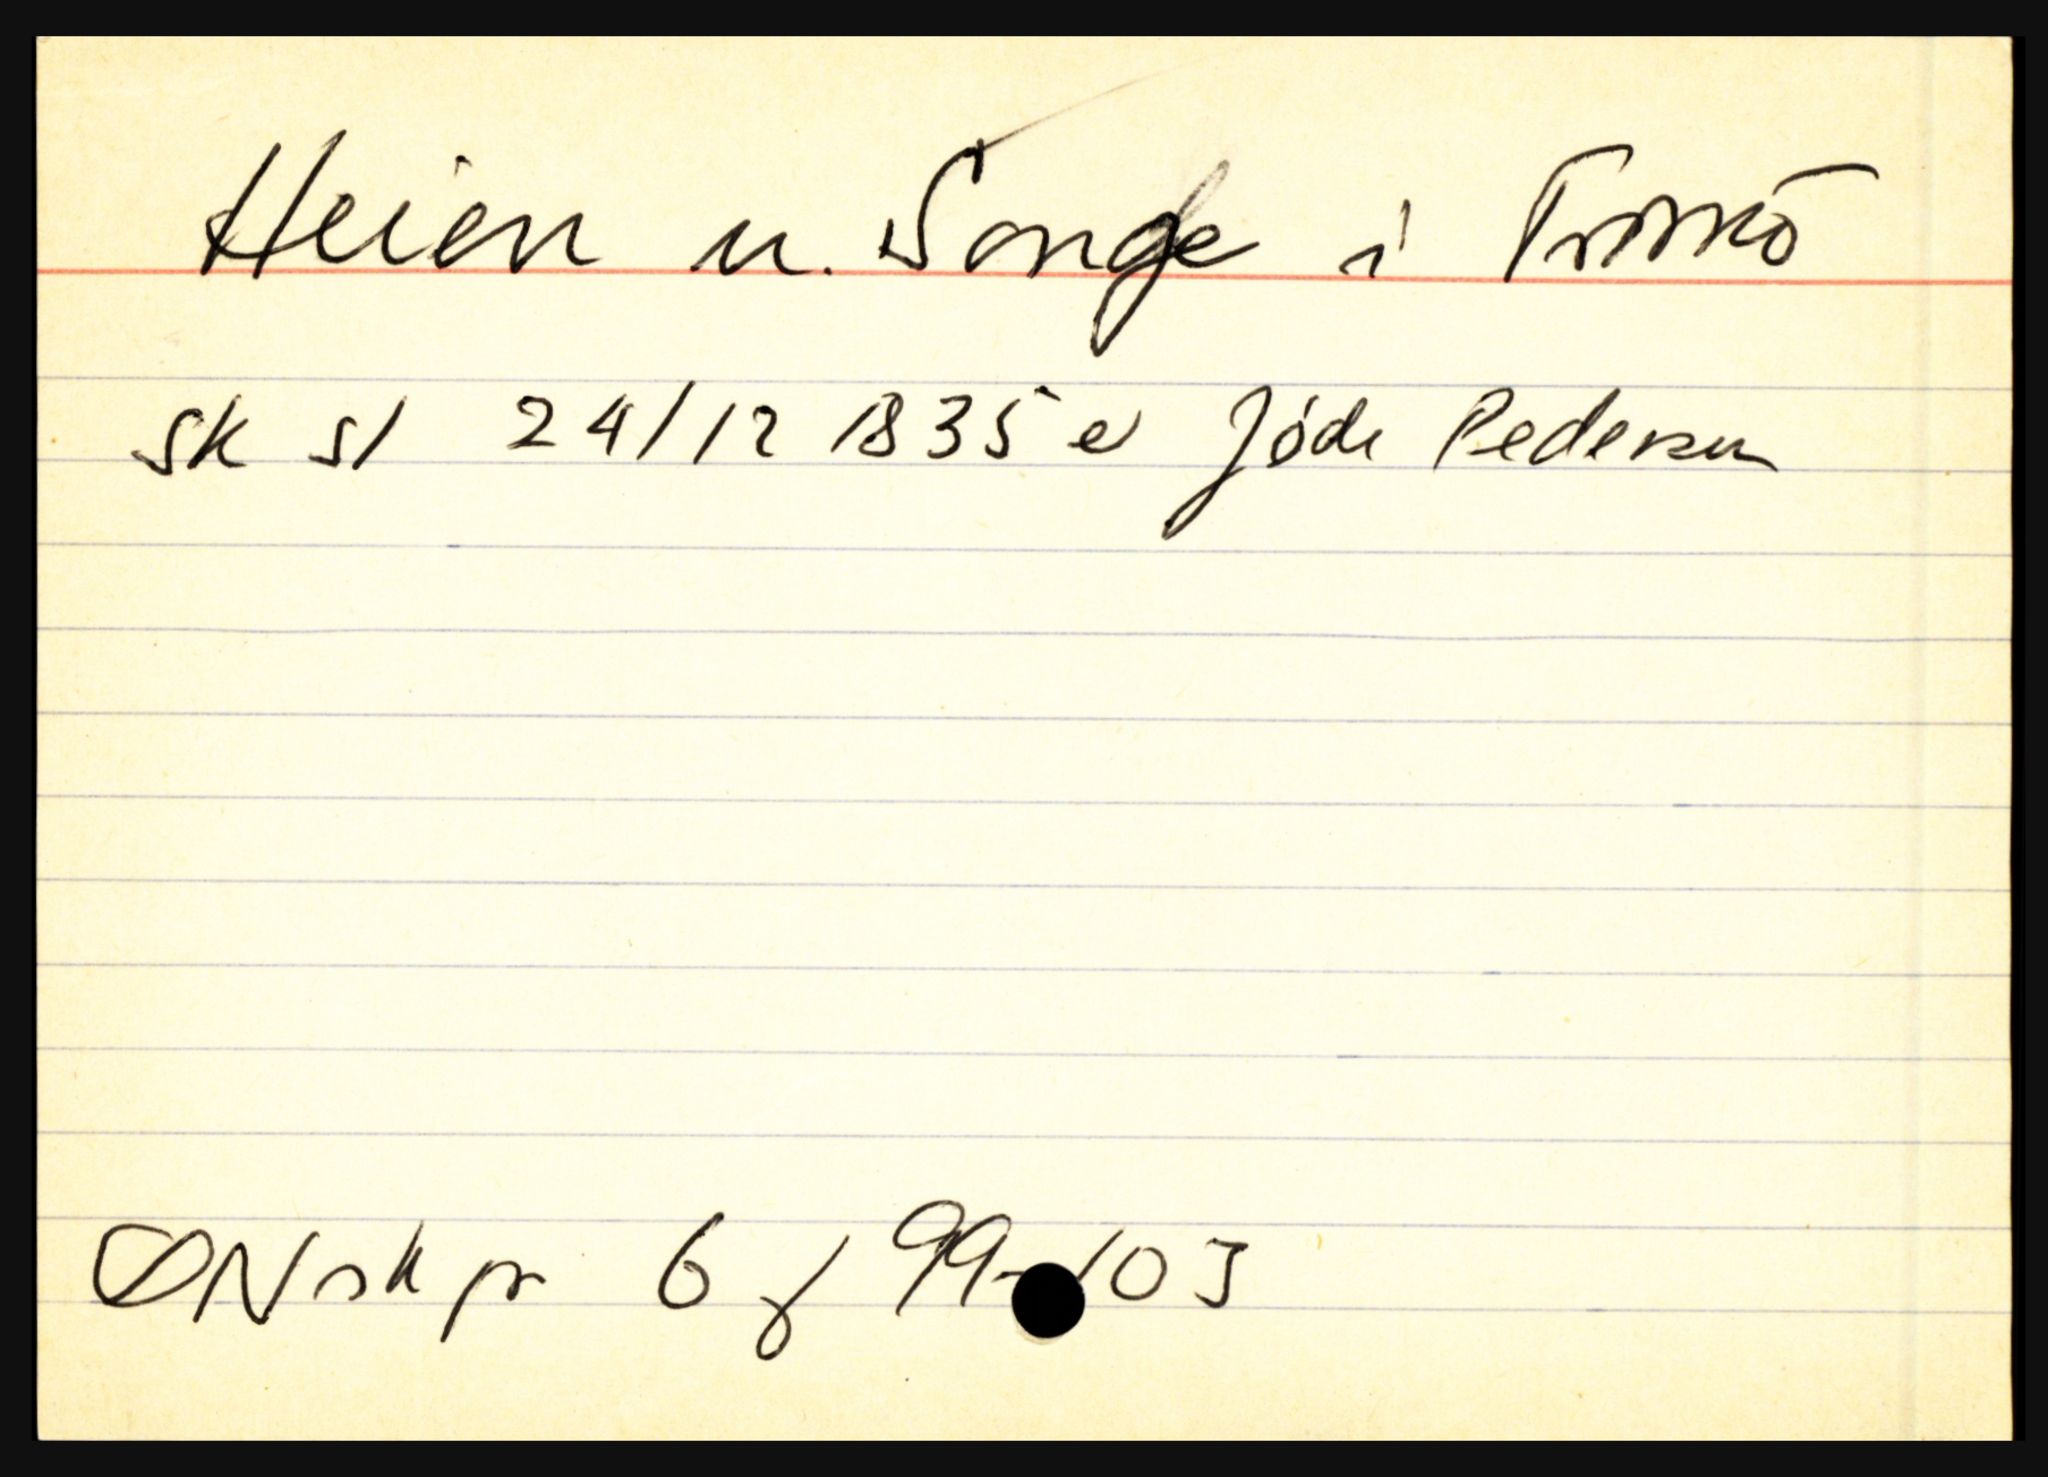 Heien u. Songe i Tromö
sk sl 24/12 1835 e Jöde Pedersen
ØNskpr 6 f 99-103